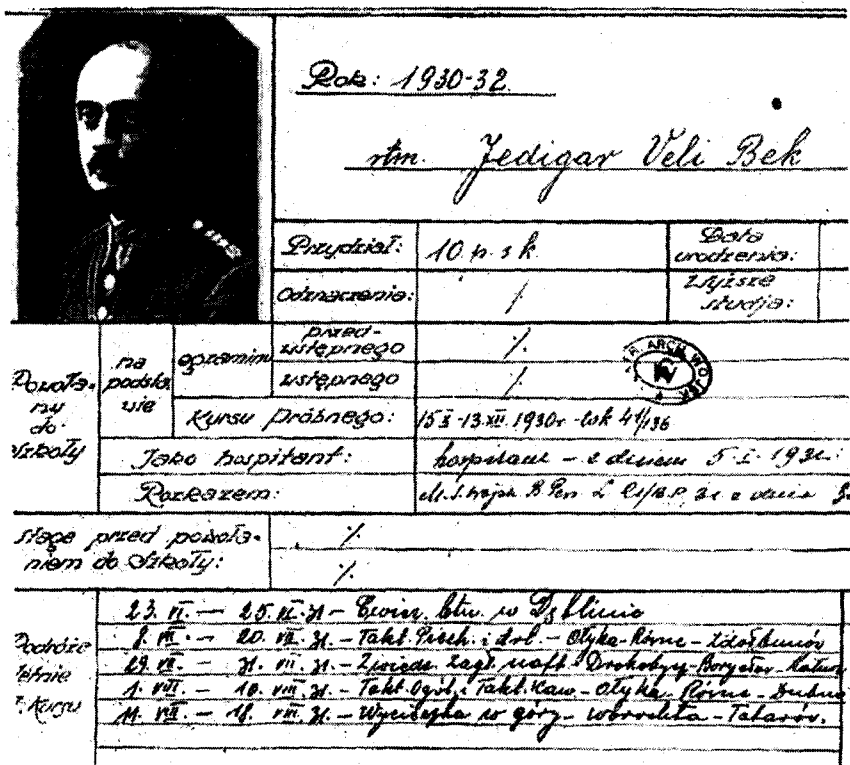 Rok: 1930-32.
rtm. Jedigar Veli Bek
Przydział: 10. p. s. k. Data urodzenia:
Odznaczenia: /. Wyższe studja:
Powołany do Szkoły na podstawie egzaminu przedwstępnego /.
wstępnego /.
Kursu Próbnego: 15 X - 13. XII. 1930 r. - lok 41/136
Jako hospitant: hospitant - z dniem 5. I. 1931.
Rozkazem: M. S. Wojsk. B. Pers. L.
ARCH. WOJSK
Staże przed powoła- /.
niem do Szkoły: /.
Podróże letnie Kursu
23. VI. — 25. VI. 31 — Ćwicz. lotn. w Dęblinie
8. VII. — 20. VII. 31. — Takt. Piech. i Art. — Ołyka - Równe - Zdołbunów
29. VII. — 31. VII. 31. — Zwiedz. Zagł. naft. Drohobycz - Borysław -
1. VIII. — 10. VIII. 31. — Takt. Ogól. i Takt. Kaw. — Ołyka Równe - Dubno
11. VIII. — 18. VIII. 31. — Wycieczka w góry - Worochta - Tatarów.